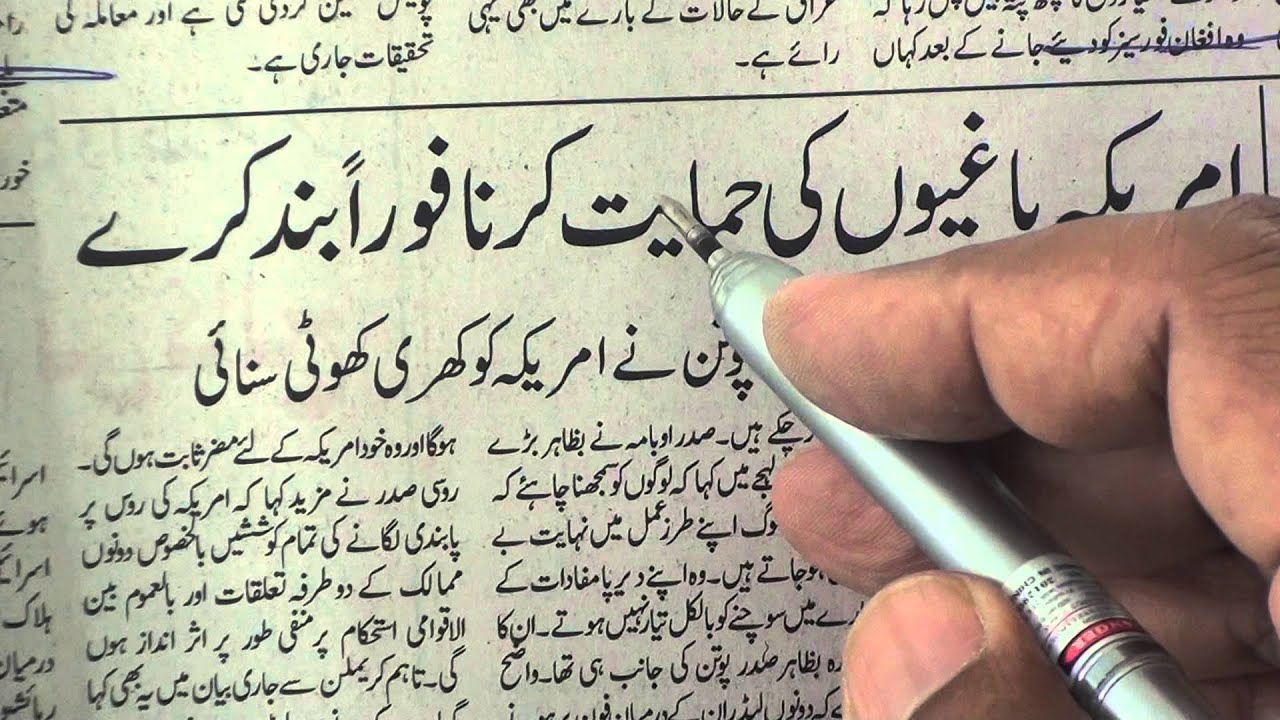 وہ افغان فورسیز کو دیئے جانے کے بعد کہاں
عراق کے حالات کے بارے میں بھی یہی
رائے ہے۔
تحقیقات جاری ہے۔
امریکہ باغیوں کی حمایت کرنا فوراً بند کرے
پوتن نے امریکہ کو کھری کھوٹی سنائی
چکے ہیں۔ صدر اوبامہ نے بظاہر بڑے
لہجے میں کہا کہ لوگوں کو سمجھنا چاہئے کہ
لوگ اپنے طرز عمل میں نہایت بے
ہوجاتے ہیں۔ وہ اپنے دیرپا مفادات کے
بارے میں سوچنے کو بالکل تیار نہیں ہوتے۔ ان کا
بظاہر صدر پوتن کی جانب ہی تھا۔ واضح
کہ دونوں لیڈران کے درمیان فون پر
ہوگا اور وہ خود امریکہ کے لئے مضر ثابت ہوں گی۔
روسی صدر نے مزید کہا کہ امریکہ کی روس پر
پابندی لگانے کی تمام کوششیں بالخصوص دونوں
ممالک کے دو طرفہ تعلقات اور بالعموم بین
الاقوامی استحکام پر منفی طور پر اثر انداز ہوں
گی۔ تاہم کریملن سے جاری بیان میں یہ بھی کہا
ہوئے
ہلاک
درمیان